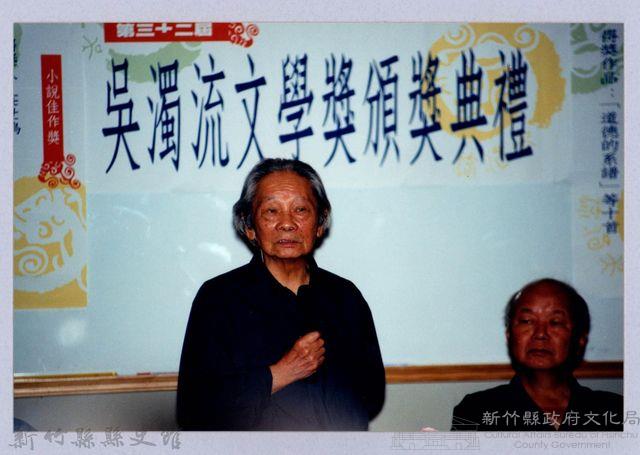 第三十二屆
吳濁流文學獎頒獎典禮
小說佳作獎
得獎作品：「道德的系譜」等十首
新竹縣縣史館
新竹縣政府文化局
Cultural Affairs Bureau of Hsinchu
County Government